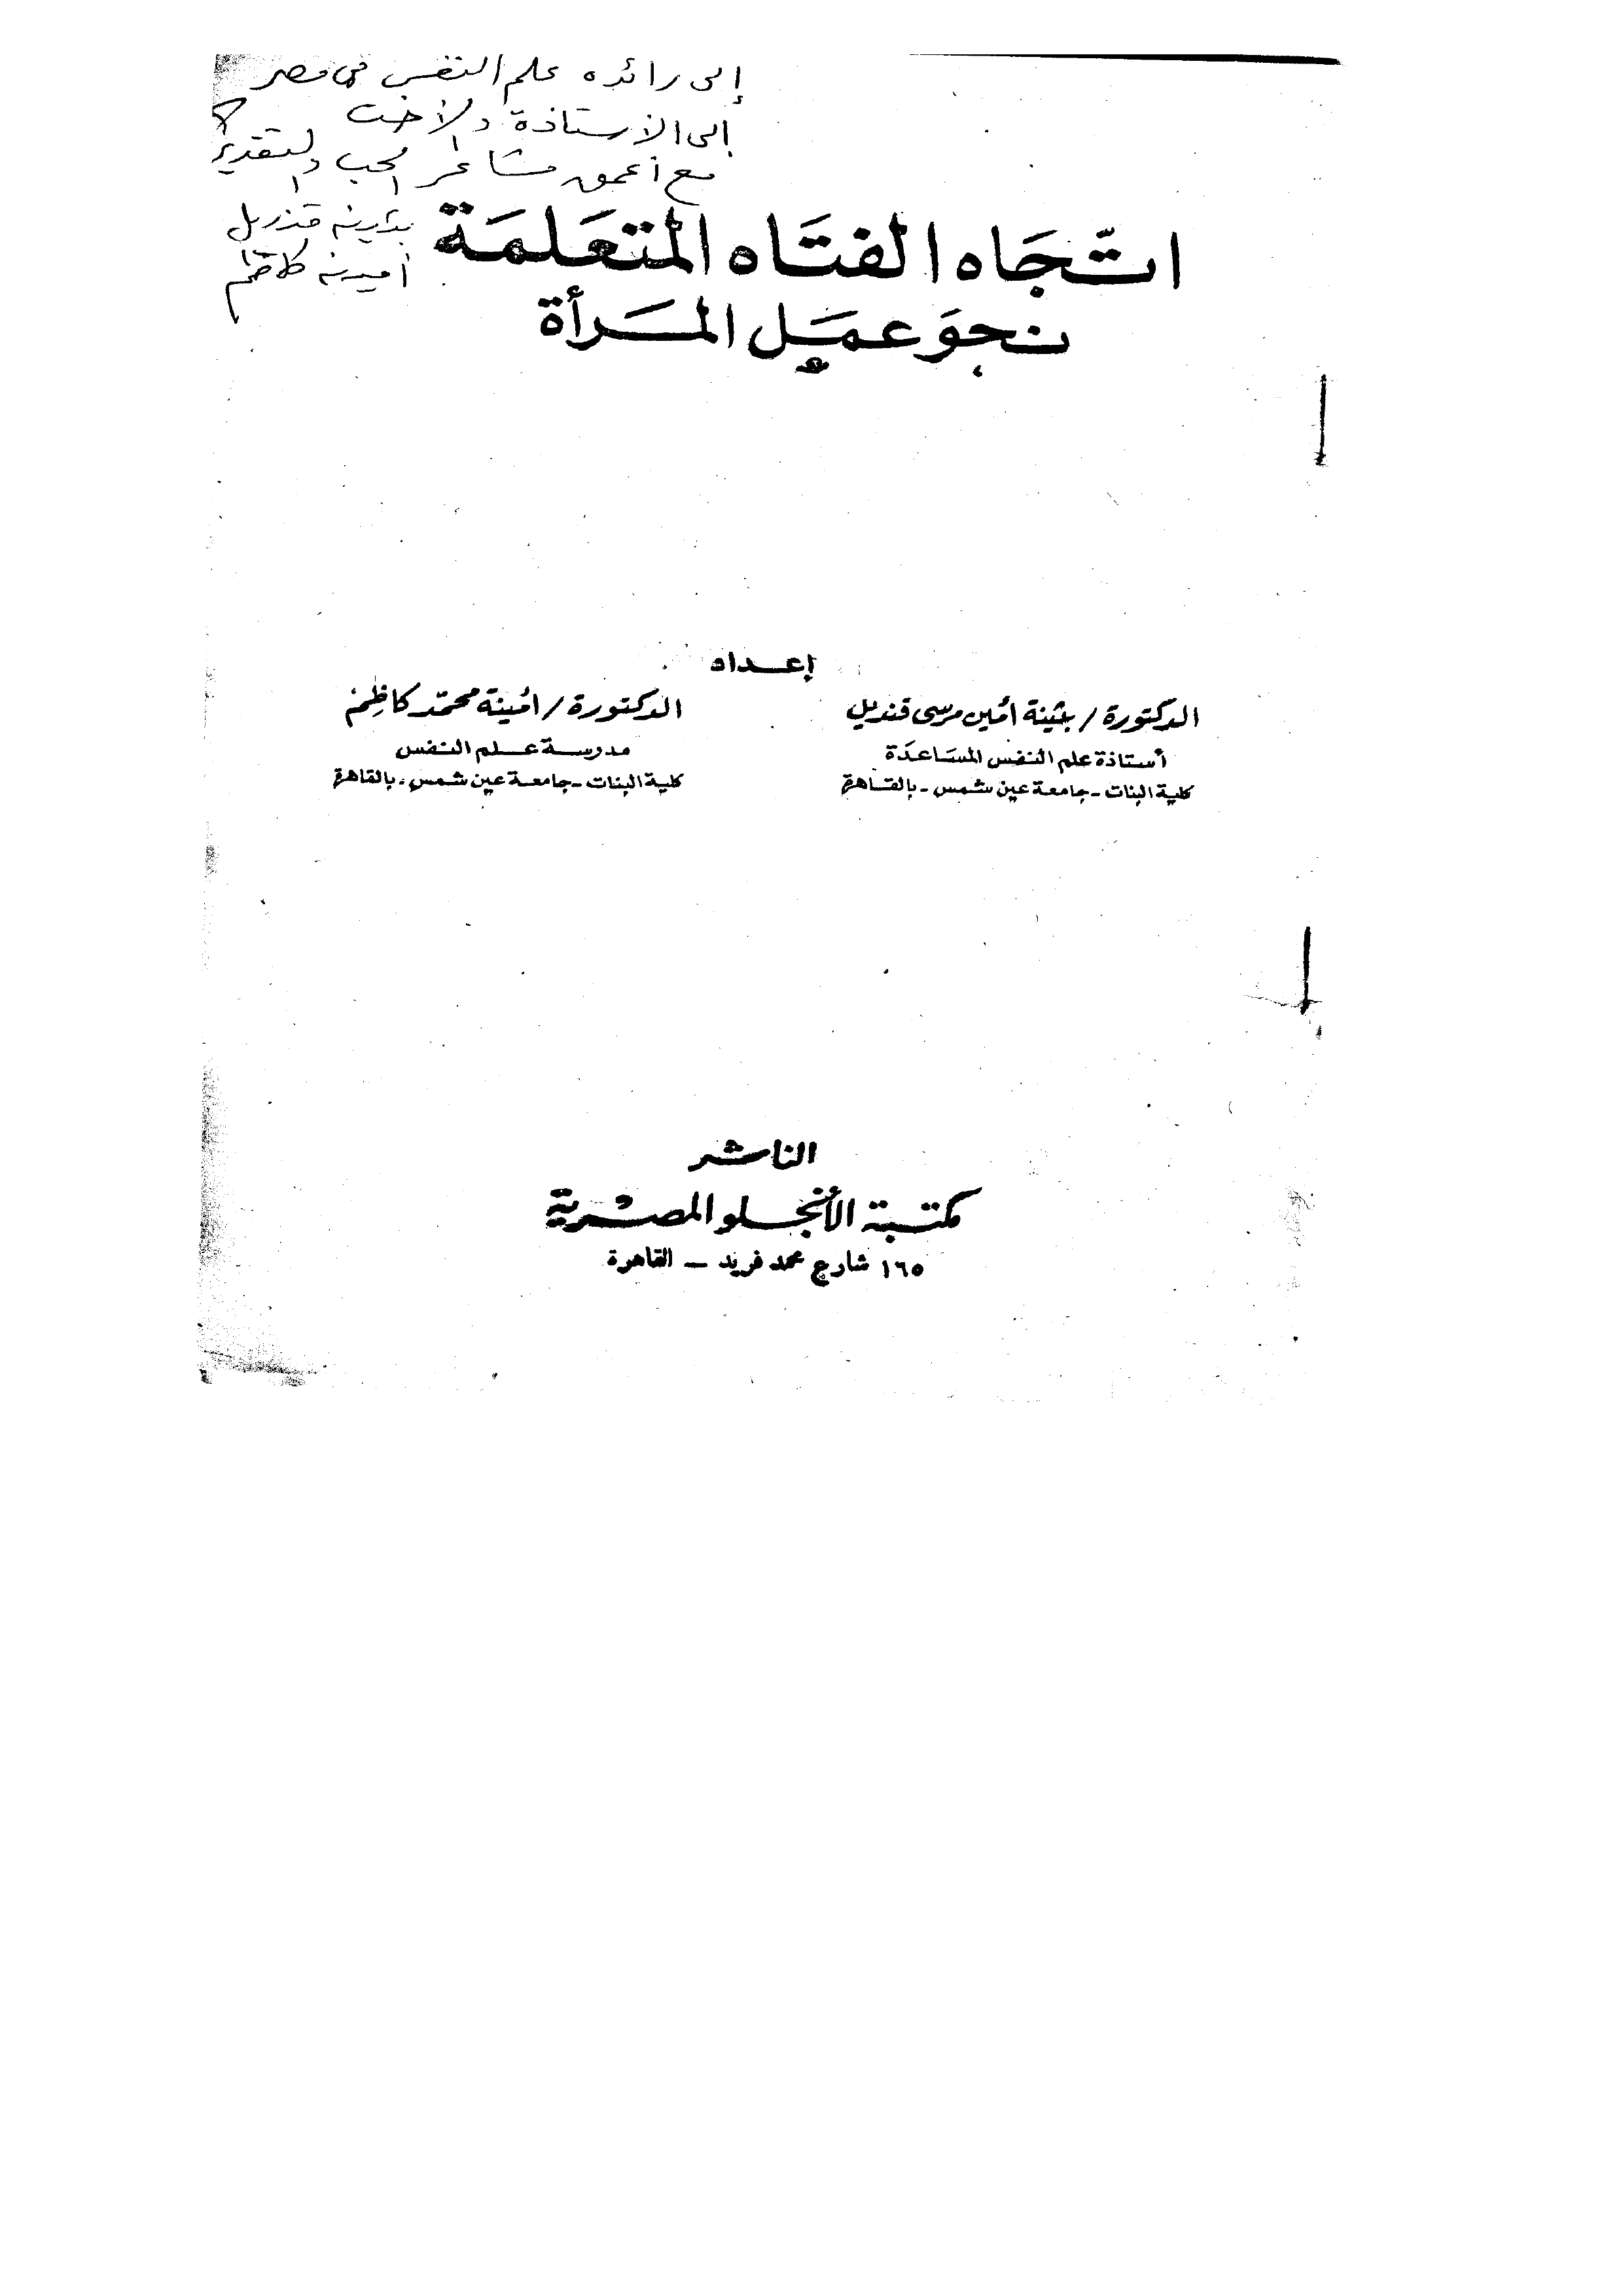 إلى رائده علم النفس فى مصر
إلى الأستاذة والأخت
مع أعمق مشاعر الحب والتقدير
بثينه قنديل
أمينه كاظم
اتّجَاه الفتَاه المتعَلمَة
نحوَ عمَل المَرأة
إعداد
الدكتورة / بثينة أمين مرسى قنديل
أستاذة علم النفس المسَاعدَة
كلية البنات - جامعة عين شمس - بالقاهرة
الدكتورة / أمينة محمّد كاظِم
مدرسة علم النفس
كلية البنات - جامعة عين شمس - بالقاهرة
الناشر
مكتبة الأنجلو المصرية
١٦٥ شارع محمد فريد – القاهرة